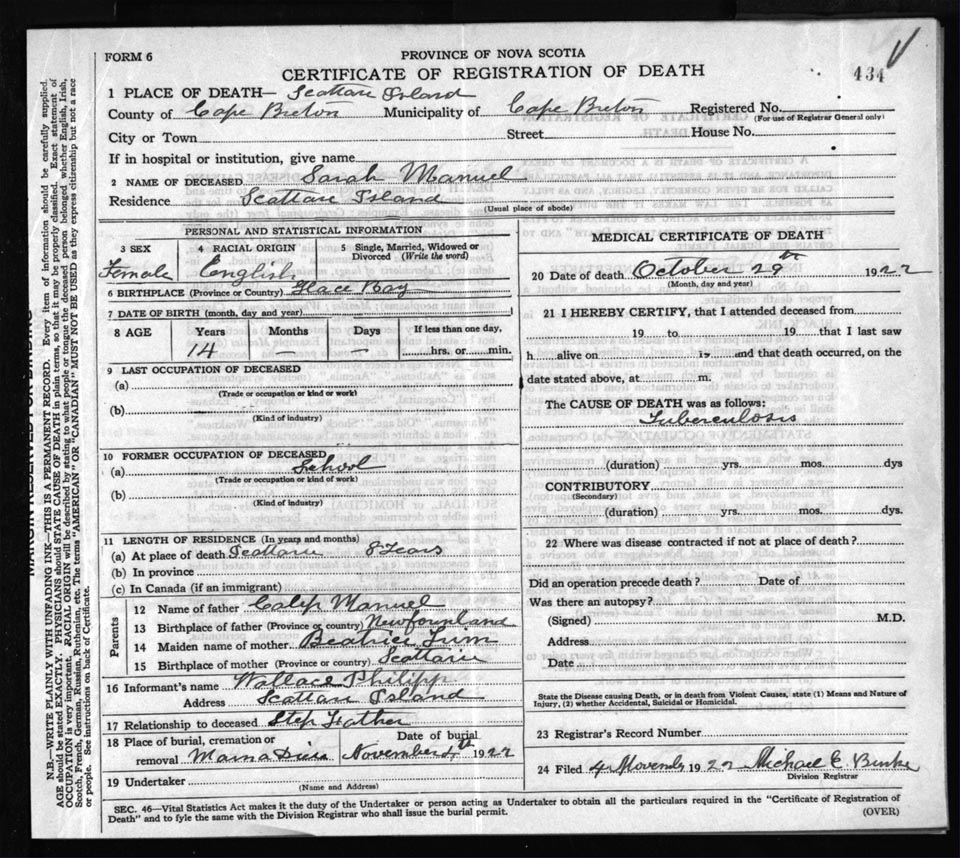 FORM 6
PROVINCE OF NOVA SCOTIA
CERTIFICATE OF REGISTRATION OF DEATH
434
1 PLACE OF DEATH— Scattari Island
County of Cape Breton Municipality of Cape Breton Registered No.
(For use of Registrar General only)
City or Town Street House No.
If in hospital or institution, give name
2 NAME OF DECEASED Sarah Manuel
Residence Scattari Island
(Usual place of abode)
PERSONAL AND STATISTICAL INFORMATION
3 SEX 4 RACIAL ORIGIN 5 Single, Married, Widowed or Divorced (Write the word)
Female English
6 BIRTHPLACE (Province or Country) Glace Bay
7 DATE OF BIRTH (month, day and year)
8 AGE Years Months Days If less than one day,
14 — — hrs. or min.
9 LAST OCCUPATION OF DECEASED
(a)
(Trade or occupation or kind or work)
(b)
(Kind of industry)
10 FORMER OCCUPATION OF DECEASED
(a) School
(Trade or occupation or kind of work)
(b)
(Kind of industry)
11 LENGTH OF RESIDENCE (In years and months)
(a) At place of death Scattarie 8 Years
(b) In province
(c) In Canada (if an immigrant)
Parents
12 Name of father Calep Manuel
13 Birthplace of father (Province or country) Newfounland
14 Maiden name of mother Beatrice
15 Birthplace of mother (Province or country) Scattarie
16 Informant's name Wallace Philipp
Address Scattari Island
17 Relationship to deceased Step Father
18 Place of burial, cremation or Date of burial
removal November 4th 1922
19 Undertaker
(Name and Address)
MEDICAL CERTIFICATE OF DEATH
20 Date of death October 29th 1922
(Month, day and year)
21 I HEREBY CERTIFY, that I attended deceased from
19 to 19 that I last saw
h alive on 19 and that death occurred, on the
date stated above, at m.
The CAUSE OF DEATH was as follows:
Tuberculosis
(duration) yrs. mos. dys
CONTRIBUTORY
(Secondary)
(duration) yrs. mos. dys.
22 Where was disease contracted if not at place of death?
Did an operation precede death? Date of
Was there an autopsy?
(Signed) M.D.
Address
Date
State the Disease causing Death, or in death from Violent Causes, state (1) Means and Nature of
Injury, (2) whether Accidental, Suicidal or Homicidal.
23 Registrar's Record Number
24 Filed 4 November 1922 Michael C. Burke
Division Registrar
SEC. 46—Vital Statistics Act makes it the duty of the Undertaker or person acting as Undertaker to obtain all the particulars required in the "Certificate of Registration of
Death" and to fyle the same with the Division Registrar who shall issue the burial permit.
(OVER)
N.B.—WRITE PLAINLY WITH UNFADING INK—THIS IS A PERMANENT RECORD. Every item of information should be carefully supplied.
AGE should be stated EXACTLY. PHYSICIANS should STATE CAUSE OF DEATH in plain terms, so that it may be properly classified. Exact statement of
OCCUPATION is very important. RACIAL ORIGIN will be described by stating to what people or tongue the deceased person belonged whether English, Irish,
Scotch, French, German, Russian, Ruthenian, etc. The terms "AMERICAN" OR "CANADIAN" MUST NOT BE USED as they express citizenship but not a race
or people. See instructions on back of Certificate.